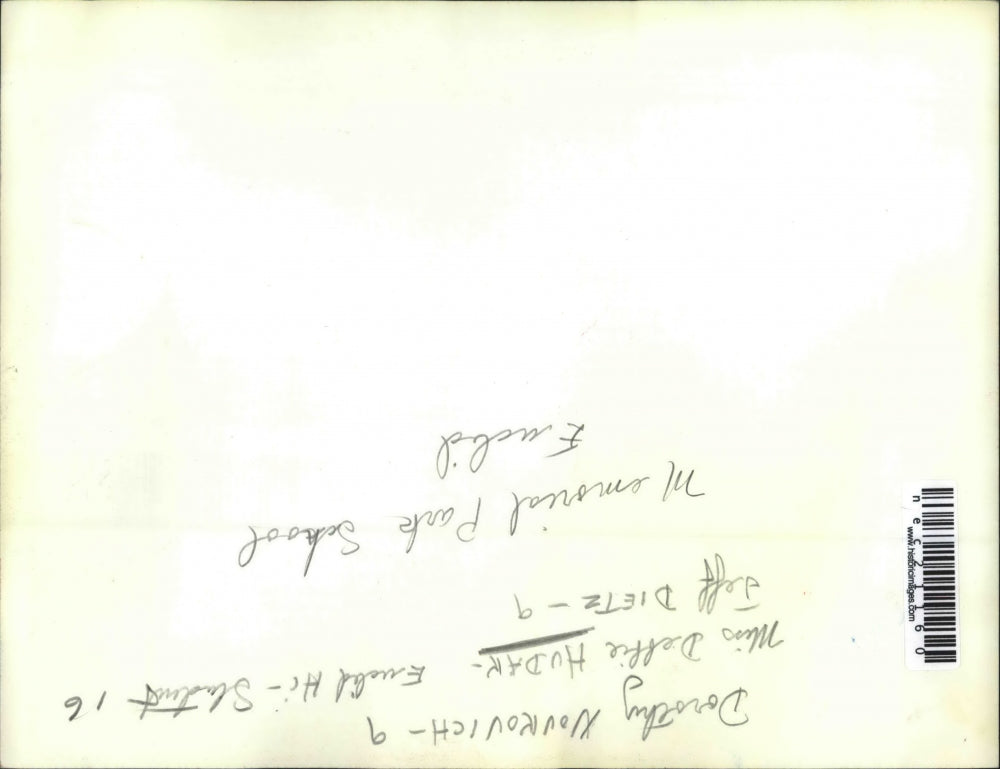 Dorothy NOVKOVICH - 9
Miss Debbie HUDAK - Euclid Hi - Student 16
Jeff DIETZ - 9
Memorial Park School
Euclid
nec21160
www.historicimages.com